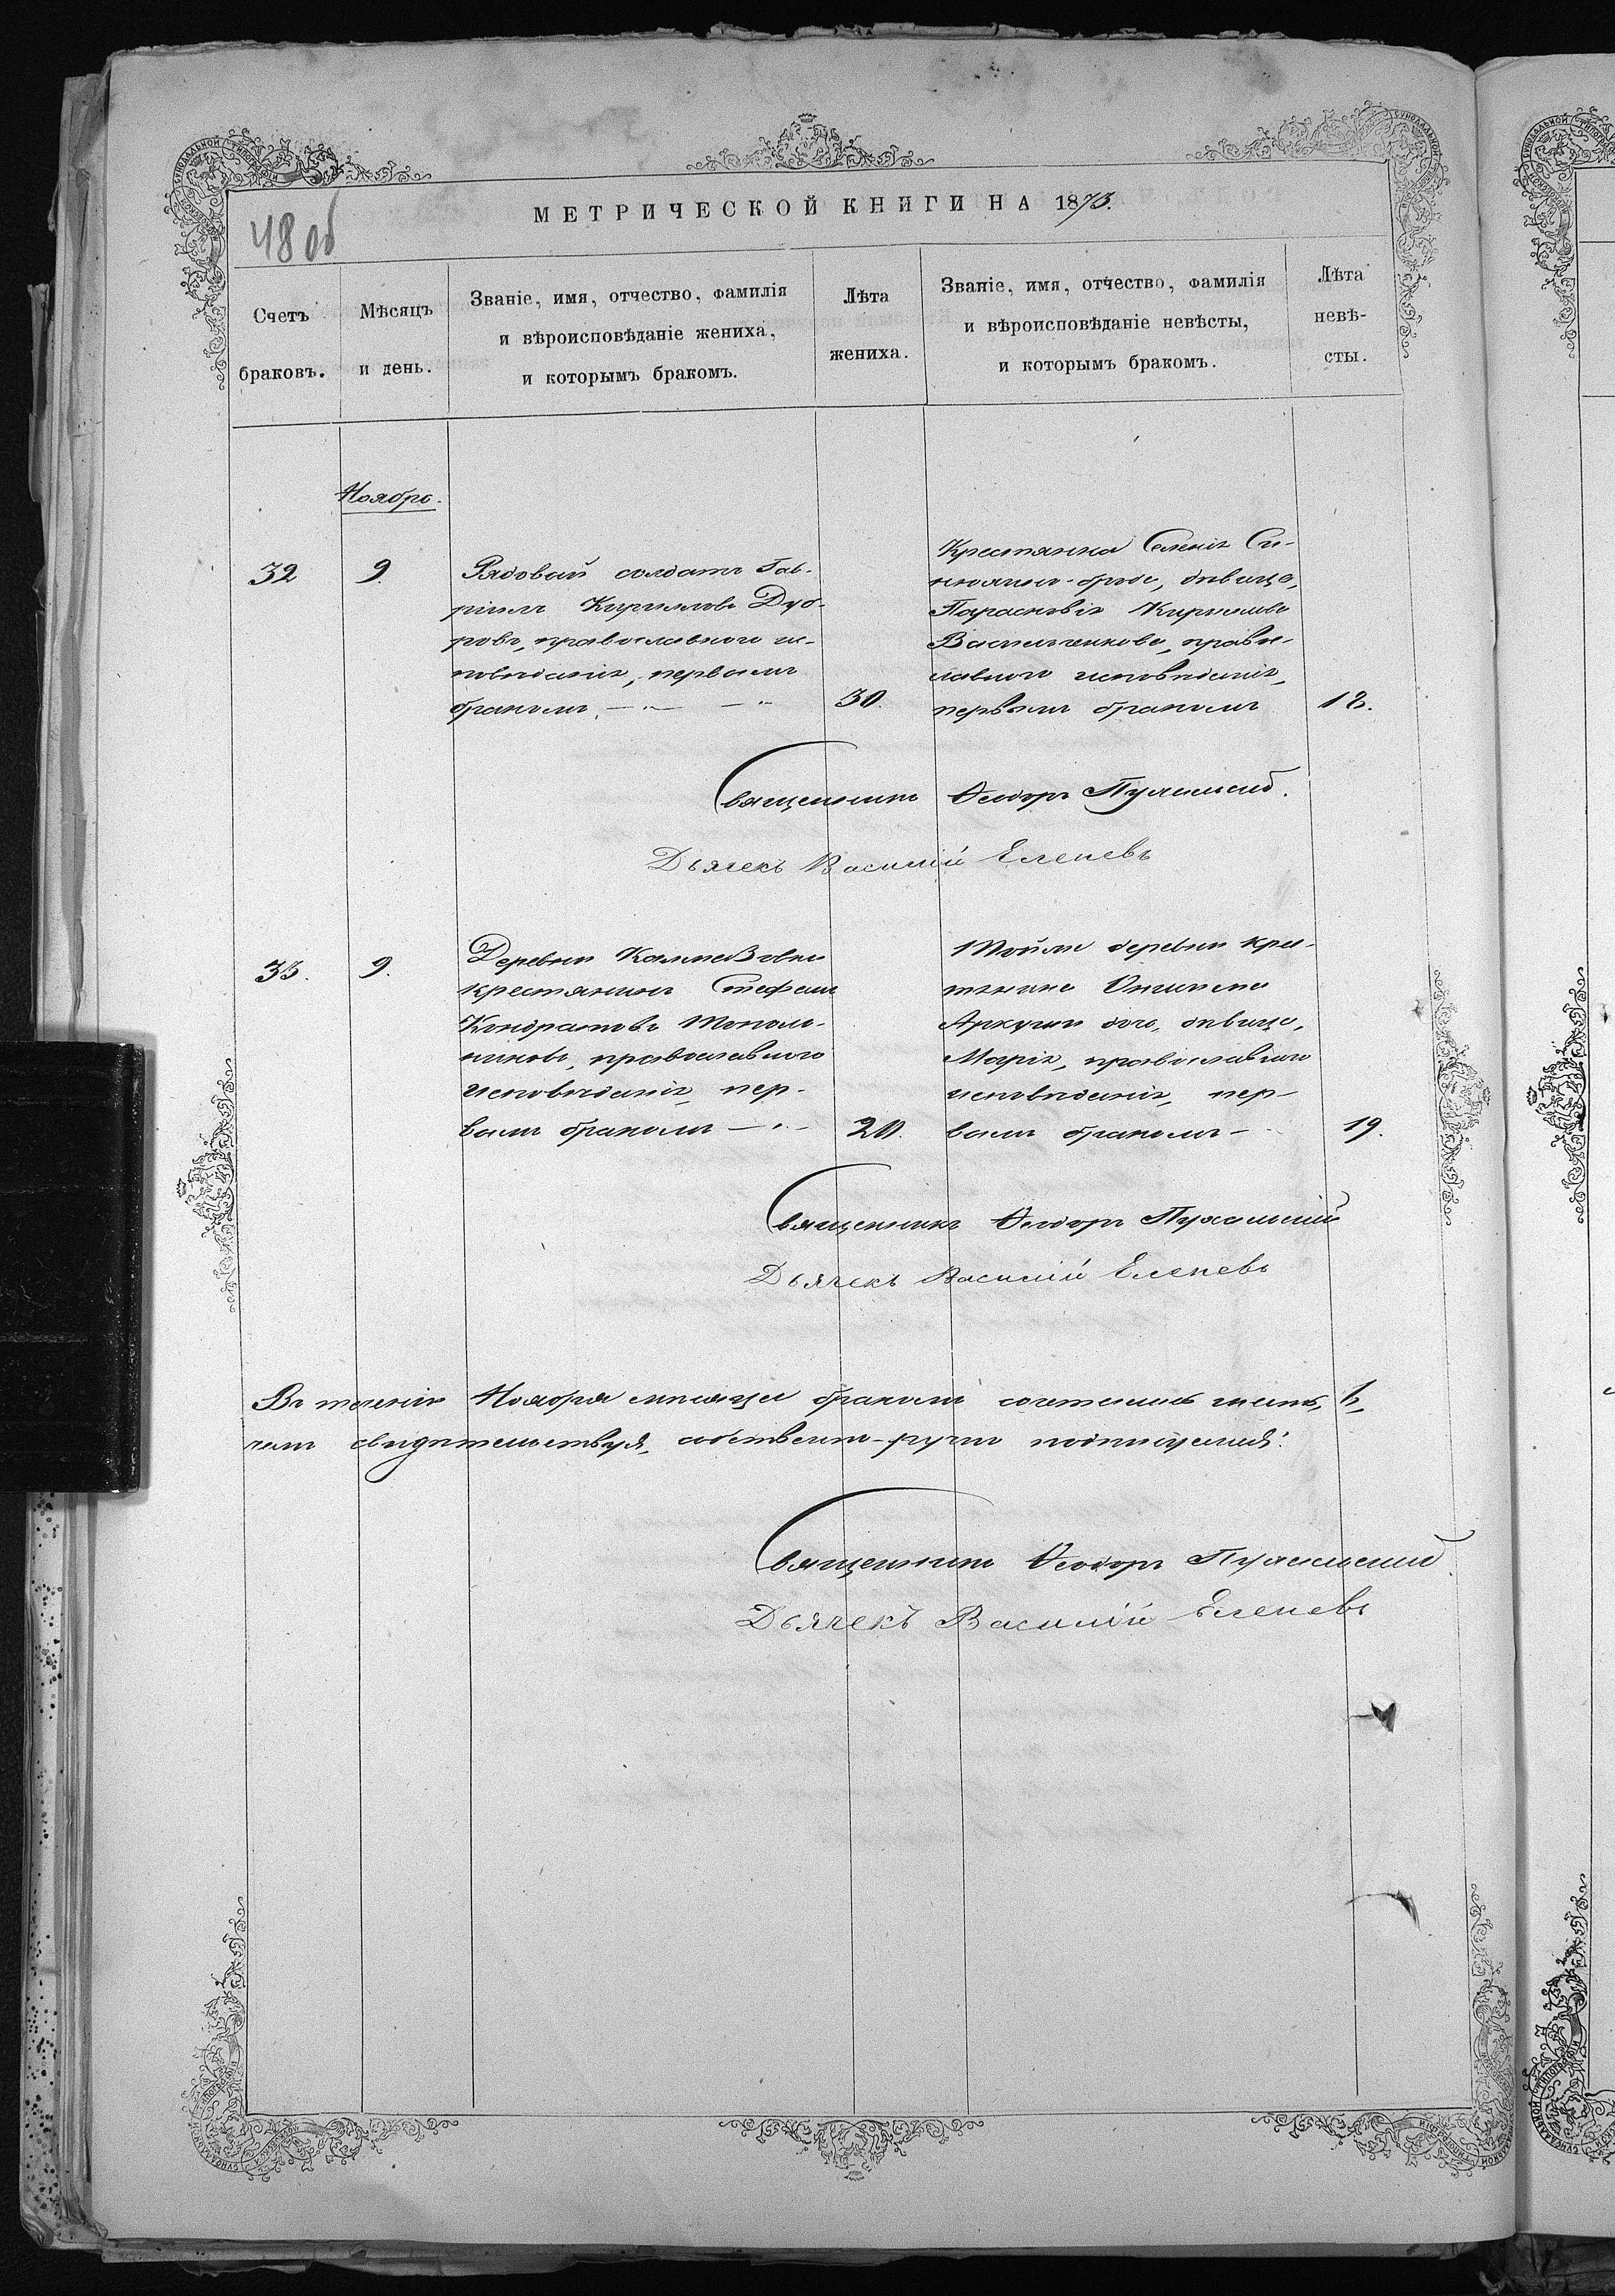 МЕТРИЧЕСКОЙ КНИГИ НА 1873.
48 об
Счетъ браковъ.
Мѣсяцъ и день.
Званіе, имя, отчество, фамилія
и вѣроисповѣданіе жениха,
и которымъ бракомъ.
Лѣта жениха.
Званіе, имя, отчество, фамилія
и вѣроисповѣданіе невѣсты,
и которымъ бракомъ.
Лѣта невѣ-
сты.
Ноября.
32
9.
Рядовой солдатъ Гав-
ріилъ Кирилловъ Дуб-
ровъ, православнаго ис-
повѣданія, первымъ
бракомъ
30.
Крестянка
дѣвица,
Параскевія Кирилова
Васильченкова, право-
славнаго исповѣданія,
первымъ бракомъ
18.
Священникъ Ѳеодоръ
Дьячекъ Василій Еленевъ
33.
9.
Деревни
крестянинъ Стефанъ
Кондратовъ Тополь-
никовъ, православнаго
исповѣданія, пер-
вымъ бракомъ
20.
Тойже деревни крес-
тянина
дочь, дѣвица,
Марія, православнаго
исповѣданія, пер-
вымъ бракомъ
19.
Священникъ Ѳеодоръ
Дьячекъ Василій Еленевъ
Въ теченіи Ноября мѣсяца бракомъ сочетались
чемъ свидѣтельствуя, собственно-ручно подписуемся:
Священникъ Ѳеодоръ
Дьячекъ Василій Еленевъ